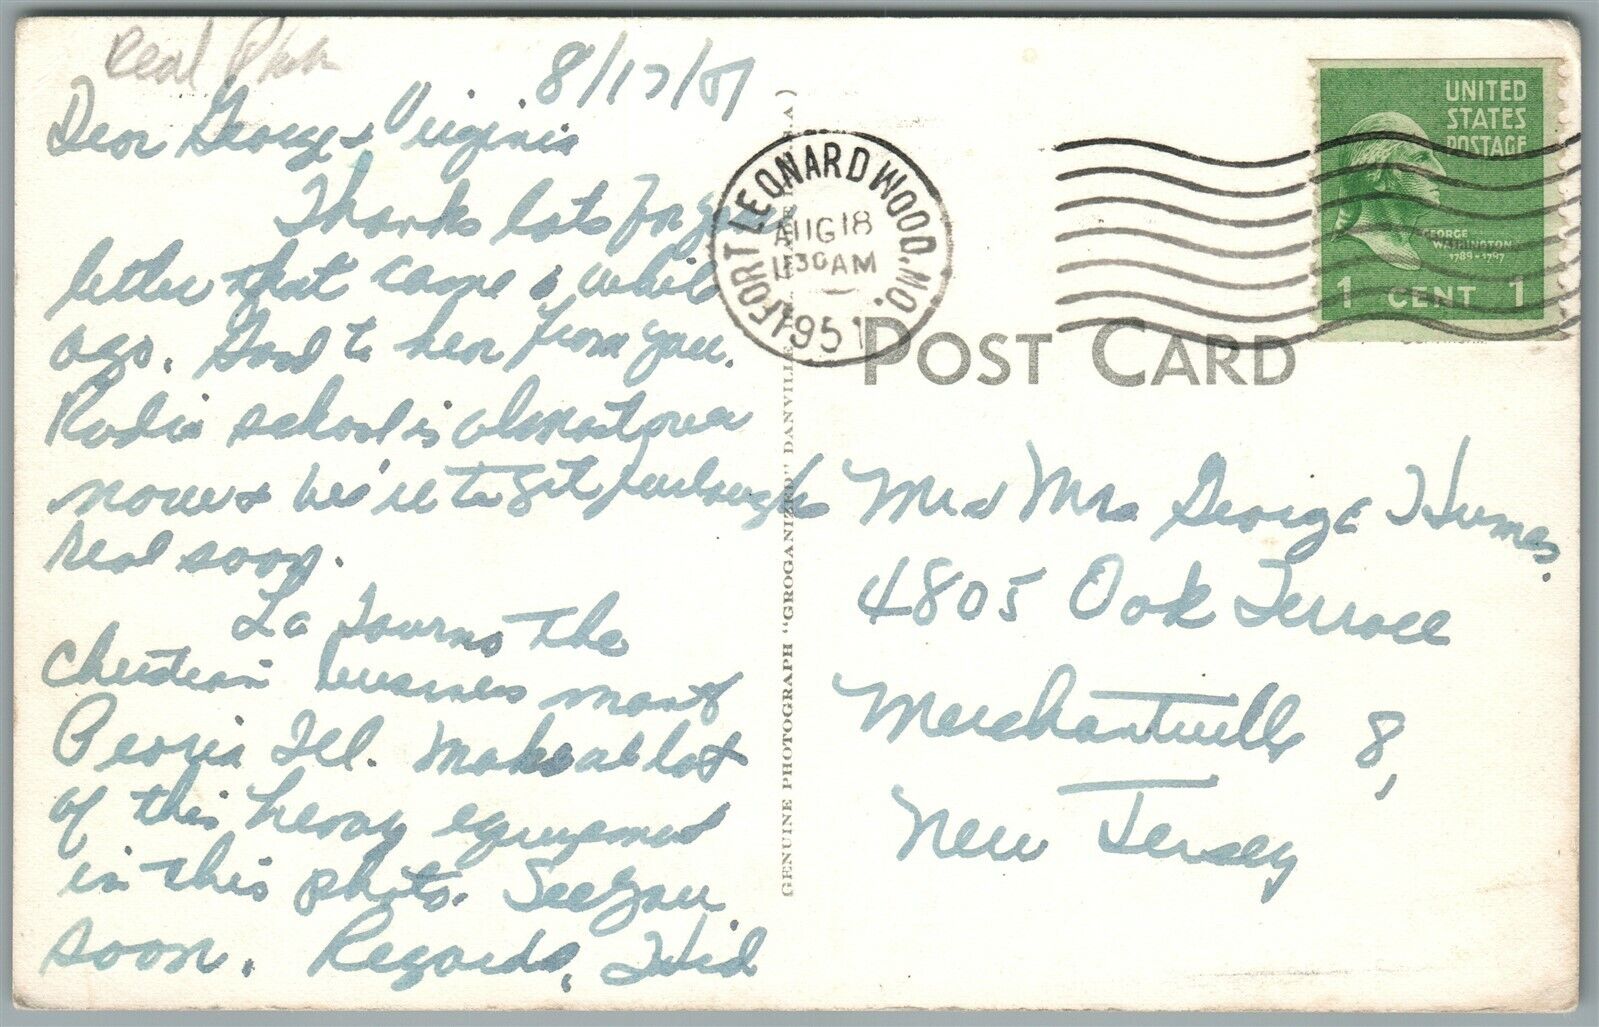 Real Photo
8/17/51
Dear George & Virginia
Thanks lots for your
letter that came a while
ago. Good to hear from you.
Radio school is almost over
now & we'll get furloughs
real soon.
Le Tourno the
Christian business man of
Peoria Ill. makes a lot
of this heavy equipment
in this photo. See you
soon. Regards, Sid
GENUINE PHOTOGRAPH "GROGANIZED" DANVILLE
FORT LEONARD WOOD, MO.
AUG 18
11 30 AM
1951
UNITED
STATES
POSTAGE
GEORGE
WASHINGTON
1789-1797
1 CENT 1
POST CARD
Mr & Mrs George Humes.
4805 Oak Terrace
Merchantville 8,
New Jersey